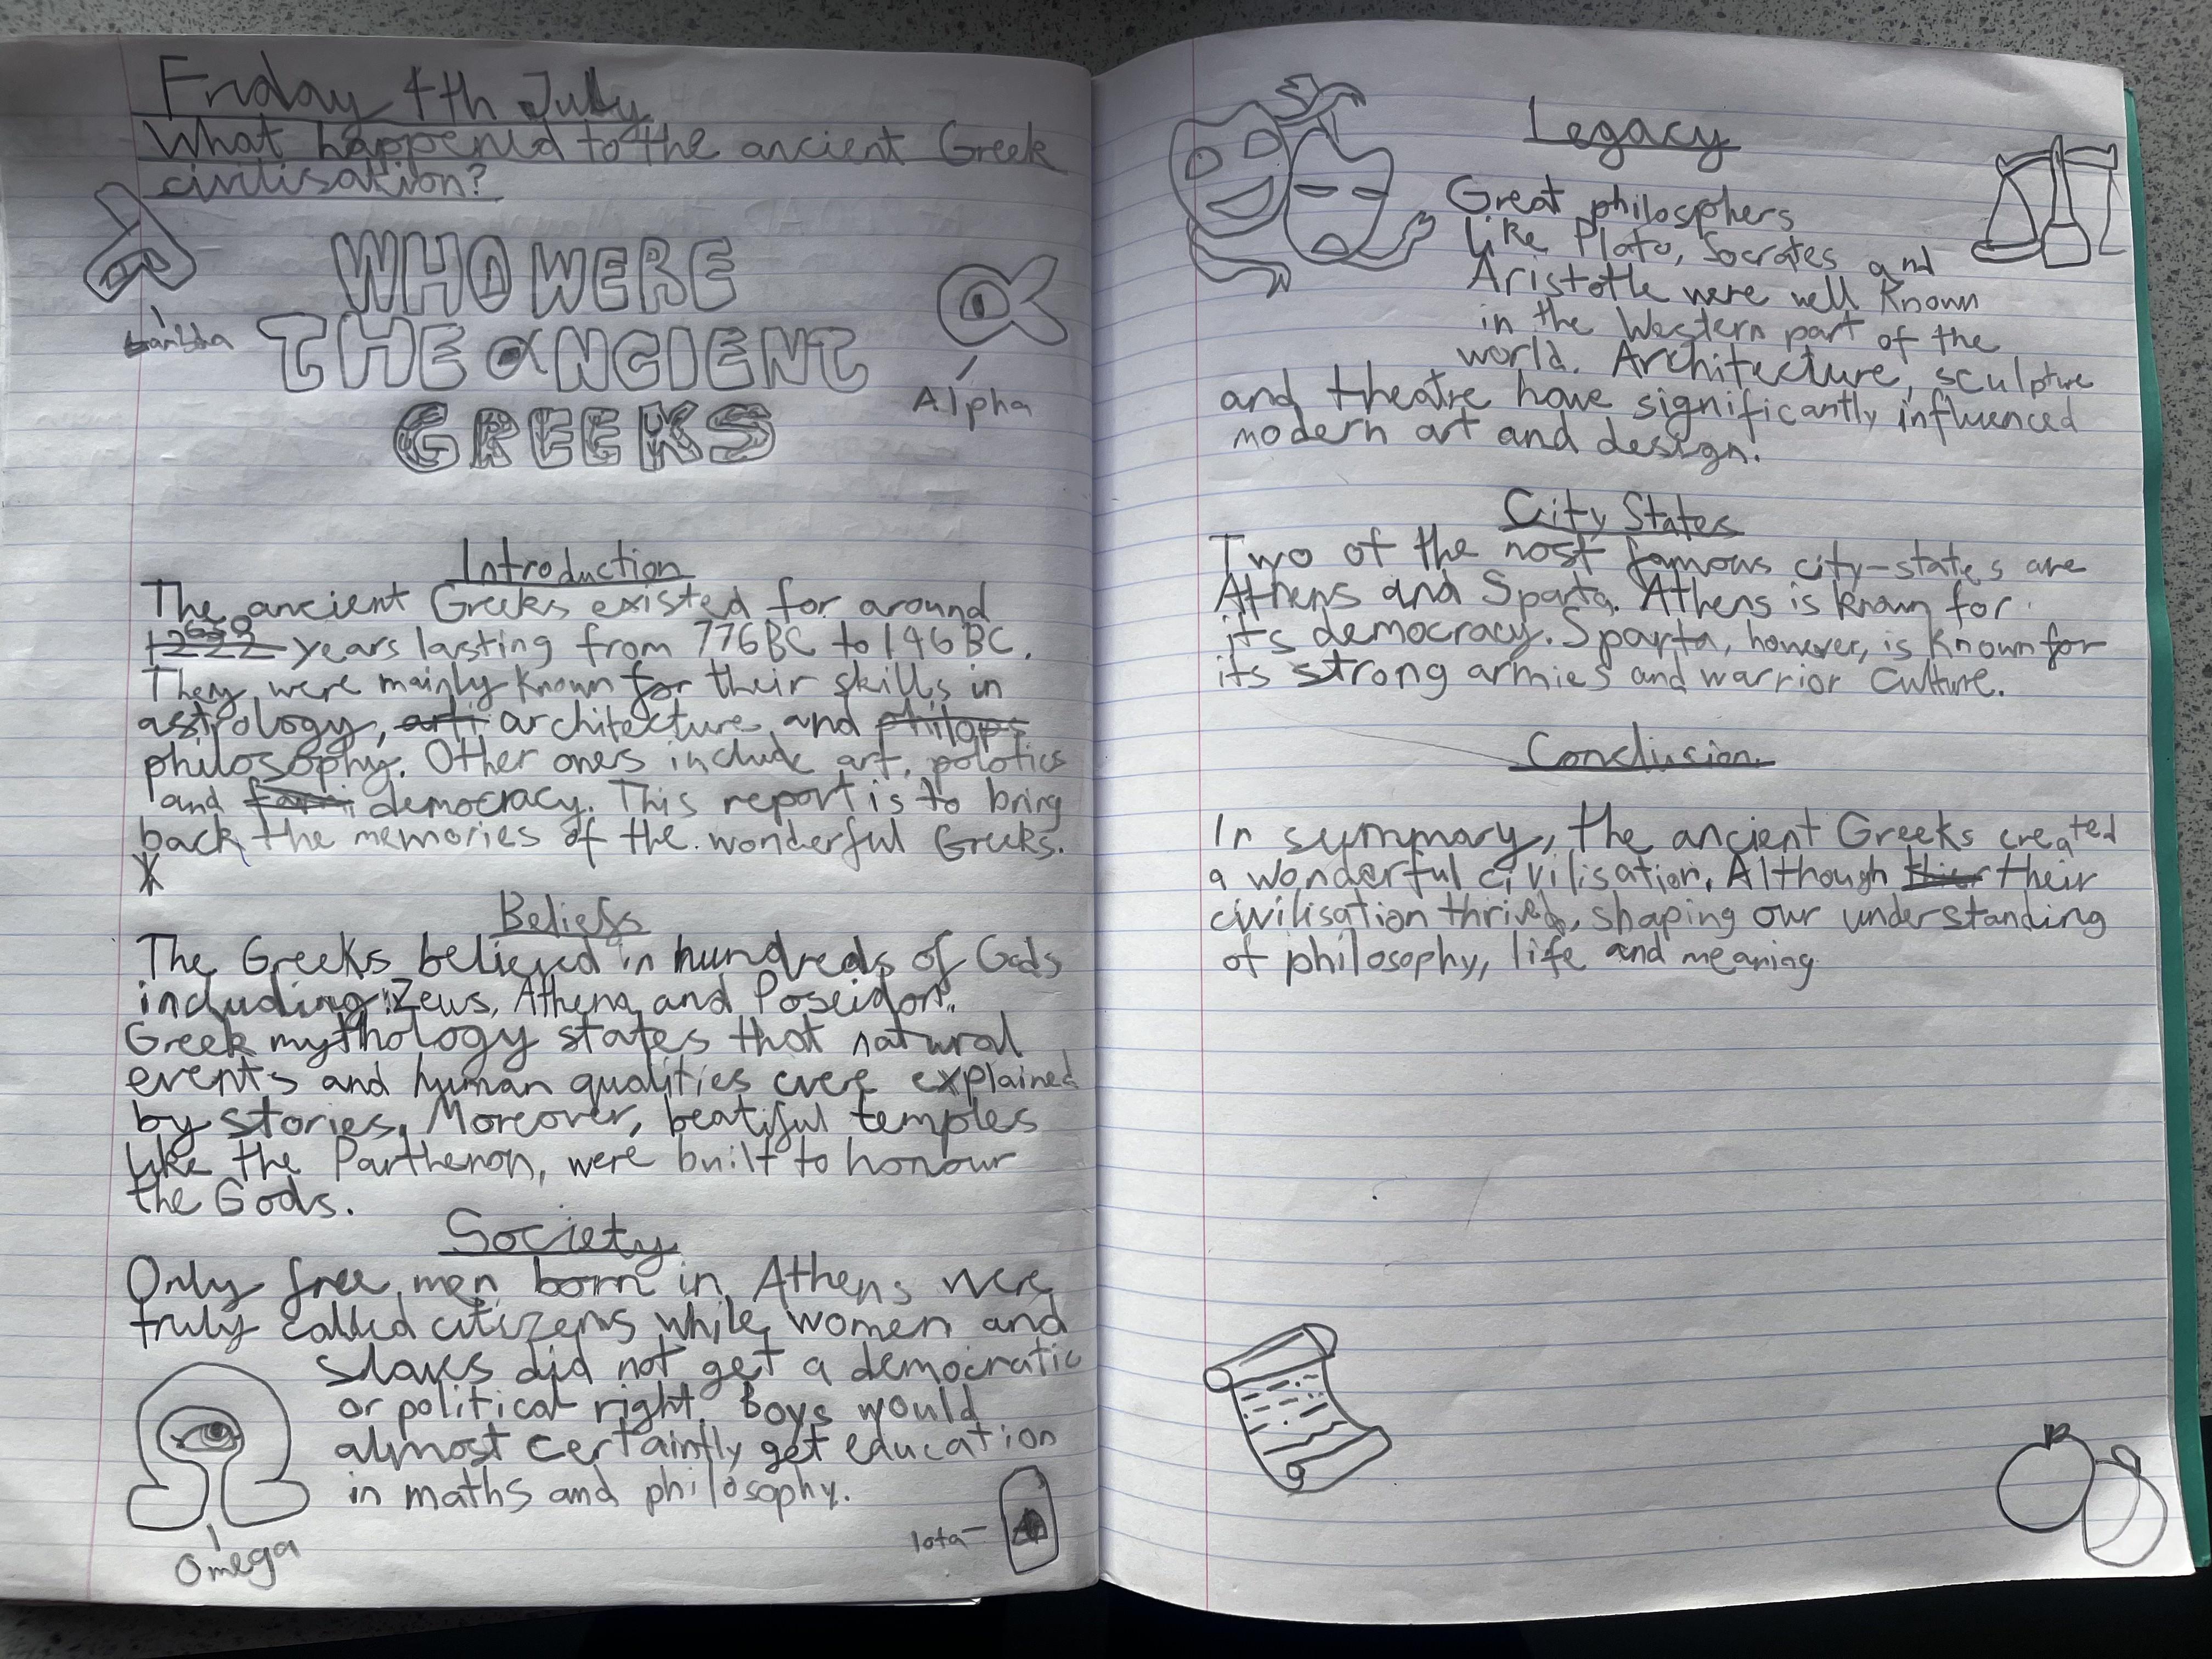 Friday 4th July
What happened to the ancient Greek
civilisation?
WHO WERE
THE αNCIENT
GREEKS
Lambda
Alpha
Introduction
The ancient Greeks existed for around
630
1222 years lasting from 776BC to 146BC.
They were mainly known for their skills in
astrology, arti architecture and philops
philosophy. Other ones include art, polotics
and democracy. This report is to bring
back the memories of the wonderful Greeks.
Beliefs
The Greeks believed in hundreds of Gods
including: Zeus, Athena and Poseidon.
Greek mythology states that natural
events and human qualities were explained
by stories. Moreover, beatiful temples
like the Parthenon, were built to honour
the Gods.
Society
Only free men born in Athens were
truly called citizens while women and
slaves did not get a democratic
or political right. Boys would
almost certaintly get education
in maths and philosophy.
Omega
Iota
Legacy
Great philosphers
like Plato, Socrates and
Aristotle were well known
in the Western part of the
world. Architecture, sculpture
and theatre have significantly influenced
modern art and design.
City States
Two of the most famous city-states are
Athens and Sparta. Athens is known for
its democracy. Sparta, however, is known for
its strong armies and warrior culture.
Conclusion
In summary, the ancient Greeks created
a wonderful civilisation. Although thier their
civilisation thrived, shaping our understanding
of philosophy, life and meaning